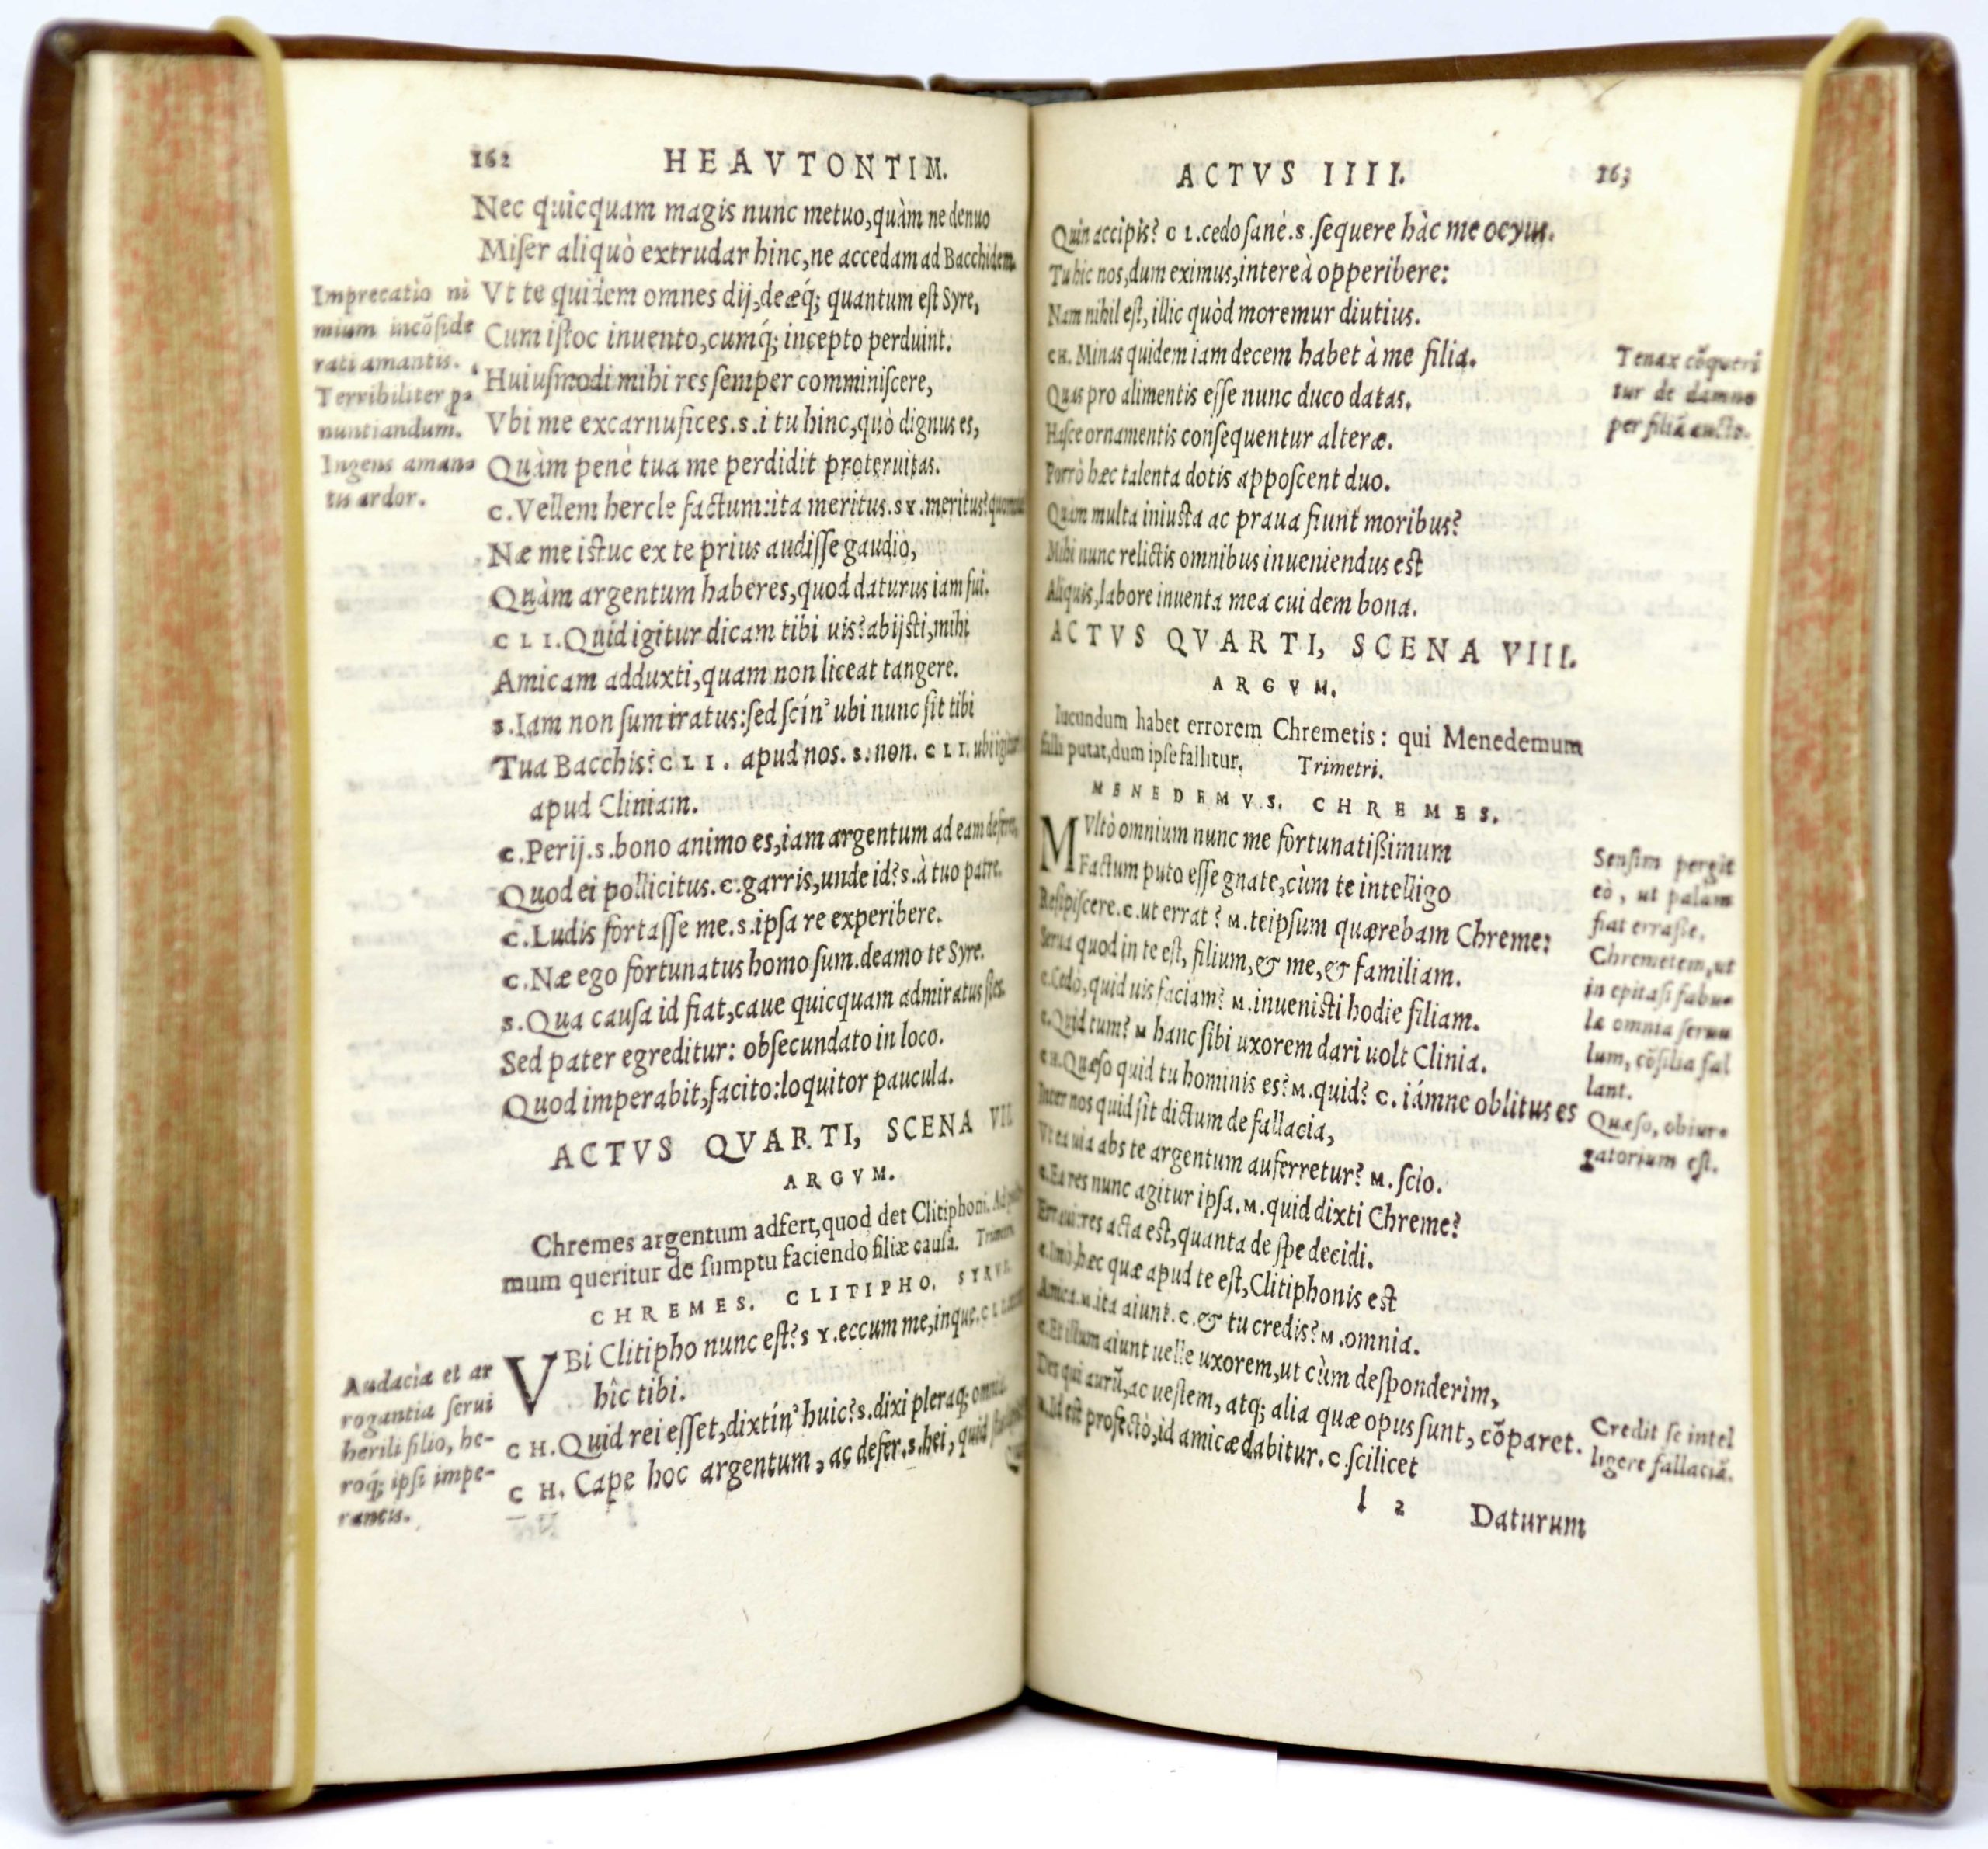 162 HEAVTONTIM.
Nec quicquam magis nunc metuo, quàm ne denuo
Miſer aliquò extrudar hinc, ne accedam ad Bacchidem.
Vt te quidem omnes dij, deæq́; quantum eſt Syre,
Cum iſtoc inuento, cumq́; incepto perduint.
Huiuſmodi mihi res ſemper comminiſcere,
Vbi me excarnufices. S. i tu hinc, quò dignus es,
Quàm penè tua me perdidit proteruitas.
C. Vellem hercle factum: ita meritus. SY. meritus?
Næ me iſtuc ex te prius audiſſe gaudio,
Quàm argentum haberes, quod daturus iam fui.
CLI. Quid igitur dicam tibi uis? abijſti, mihi
Amicam adduxti, quam non liceat tangere.
S. Iam non ſum iratus: ſed ſcin' ubi nunc ſit tibi
Tua Bacchis? CLI. apud nos. S. non. CLI. ubi igitur
apud Cliniam.
C. Perij. S. bono animo es, iam argentum ad eam
Quod ei pollicitus. C. garris, unde id? S. à tuo patre.
C. Ludis fortaſſe me. S. ipſa re experibere.
C. Næ ego fortunatus homo ſum. deamo te Syre.
S. Qua cauſa id fiat, caue quicquam admiratus ſies.
Sed pater egreditur: obſecundato in loco.
Quod imperabit, facito: loquitor paucula.
ACTVS QVARTI, SCENA VII
ARGVM.
Chremes argentum adfert, quod det Clitiphoni.
mum queritur de ſumptu faciendo filiæ cauſa.
CHREMES. CLITIPHO. SYRVS.
VBi Clitipho nunc eſt? SY. eccum me, inque.
hîc tibi.
CH. Quid rei eſſet, dixtin' huic? S. dixi pleraq; omnia
CH. Cape hoc argentum, ac defer. S. hei, quid
Imprecatio ni
mium incõſide
rati amantis.
Terribiliter p
nuntiandum.
Ingens aman-
tis ardor.
Audacia et ar
rogantia ſerui
herili filio, he-
roq́; ipſi impe-
rantis.
ACTVS IIII. 163
Quin accipis? CL. cedo ſanè. S. ſequere hàc me ocyus.
Tu hic nos, dum eximus, intereà opperibere:
Nam nihil eſt, illic quòd moremur diutius.
CH. Minas quidem iam decem habet à me filia.
Quas pro alimentis eſſe nunc duco datas.
Haſce ornamentis conſequentur alteræ.
Porrò hæc talenta dotis appoſcent duo.
Quàm multa iniuſta ac praua fiunt moribus?
Mihi nunc relictis omnibus inueniendus eſt
Aliquis, labore inuenta mea cui dem bona.
ACTVS QVARTI, SCENA VIII.
ARGVM.
Iucundum habet errorem Chremetis: qui Menedemum
falli putat, dum ipſe fallitur. Trimetri.
MENEDEMVS. CHREMES.
MVltò omnium nunc me fortunatißimum
Factum puto eſſe gnate, cùm te intelligo
Reſipiſcere. C. ut errat? M. teipſum quærebam Chreme:
Serua quod in te eſt, filium, & me, & familiam.
C. Cedò, quid uis faciam? M. inueniſti hodie filiam.
C. Quid tum? M hanc ſibi uxorem dari uolt Clinia.
CH. Quæſo quid tu hominis es? M. quid? C. iámne oblitus es
Inter nos quid ſit dictum de fallacia,
Vt ea uia abs te argentum auferretur? M. ſcio.
C. Ea res nunc agitur ipſa. M. quid dixti Chreme?
Erraui: res acta eſt, quanta de ſpe decidi.
C. Imò, hæc quæ apud te eſt, Clitiphonis eſt
Amica. M. ita aiunt. C. & tu credis? M. omnia.
C. Et illum aiunt uelle uxorem, ut cùm deſponderim,
Des qui aurũ, ac ueſtem, atq; alia quæ opus ſunt, cõparet.
M. Id eſt profectò, id amicæ dabitur. C. ſcilicet
l 2 Daturum
Tenax cõqueri
tur de damno
per filiã aucto.
Senſim pergit
eò, ut palam
fiat erraſſe,
Chremetem, ut
in epitaſi fabu-
læ omnia ſeruu
lum, cõſilia fal
lant.
Quæſo, obiur-
gatorium eſt.
Credit ſe intel
ligere fallaciã.